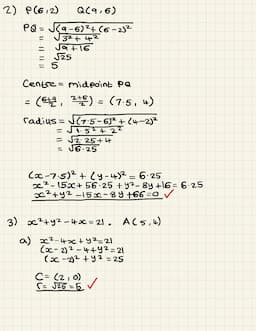 2) P(6,2) Q(9,6)
PQ = √(9-6)²+(6-2)²
= √3²+4²
= √9+16
= √25
= 5
Centre = midpoint PQ
= (6+9/2, 2+6/2) = (7.5, 4)
radius = √(7.5-6)²+(4-2)²
= √1.5²+2²
= √2.25+4
= √6.25
(x-7.5)² + (y-4)² = 6.25
x²-15x+56.25+y²-8y+16 = 6.25
x²+y²-15x-8y+66=0 ✓
3) x²+y²-4x=21. A(5,4)
a) x²-4x+y²=21
(x-2)²-4+y²=21
(x-2)²+y²=25
C=(2,0)
r=√25=5 ✓